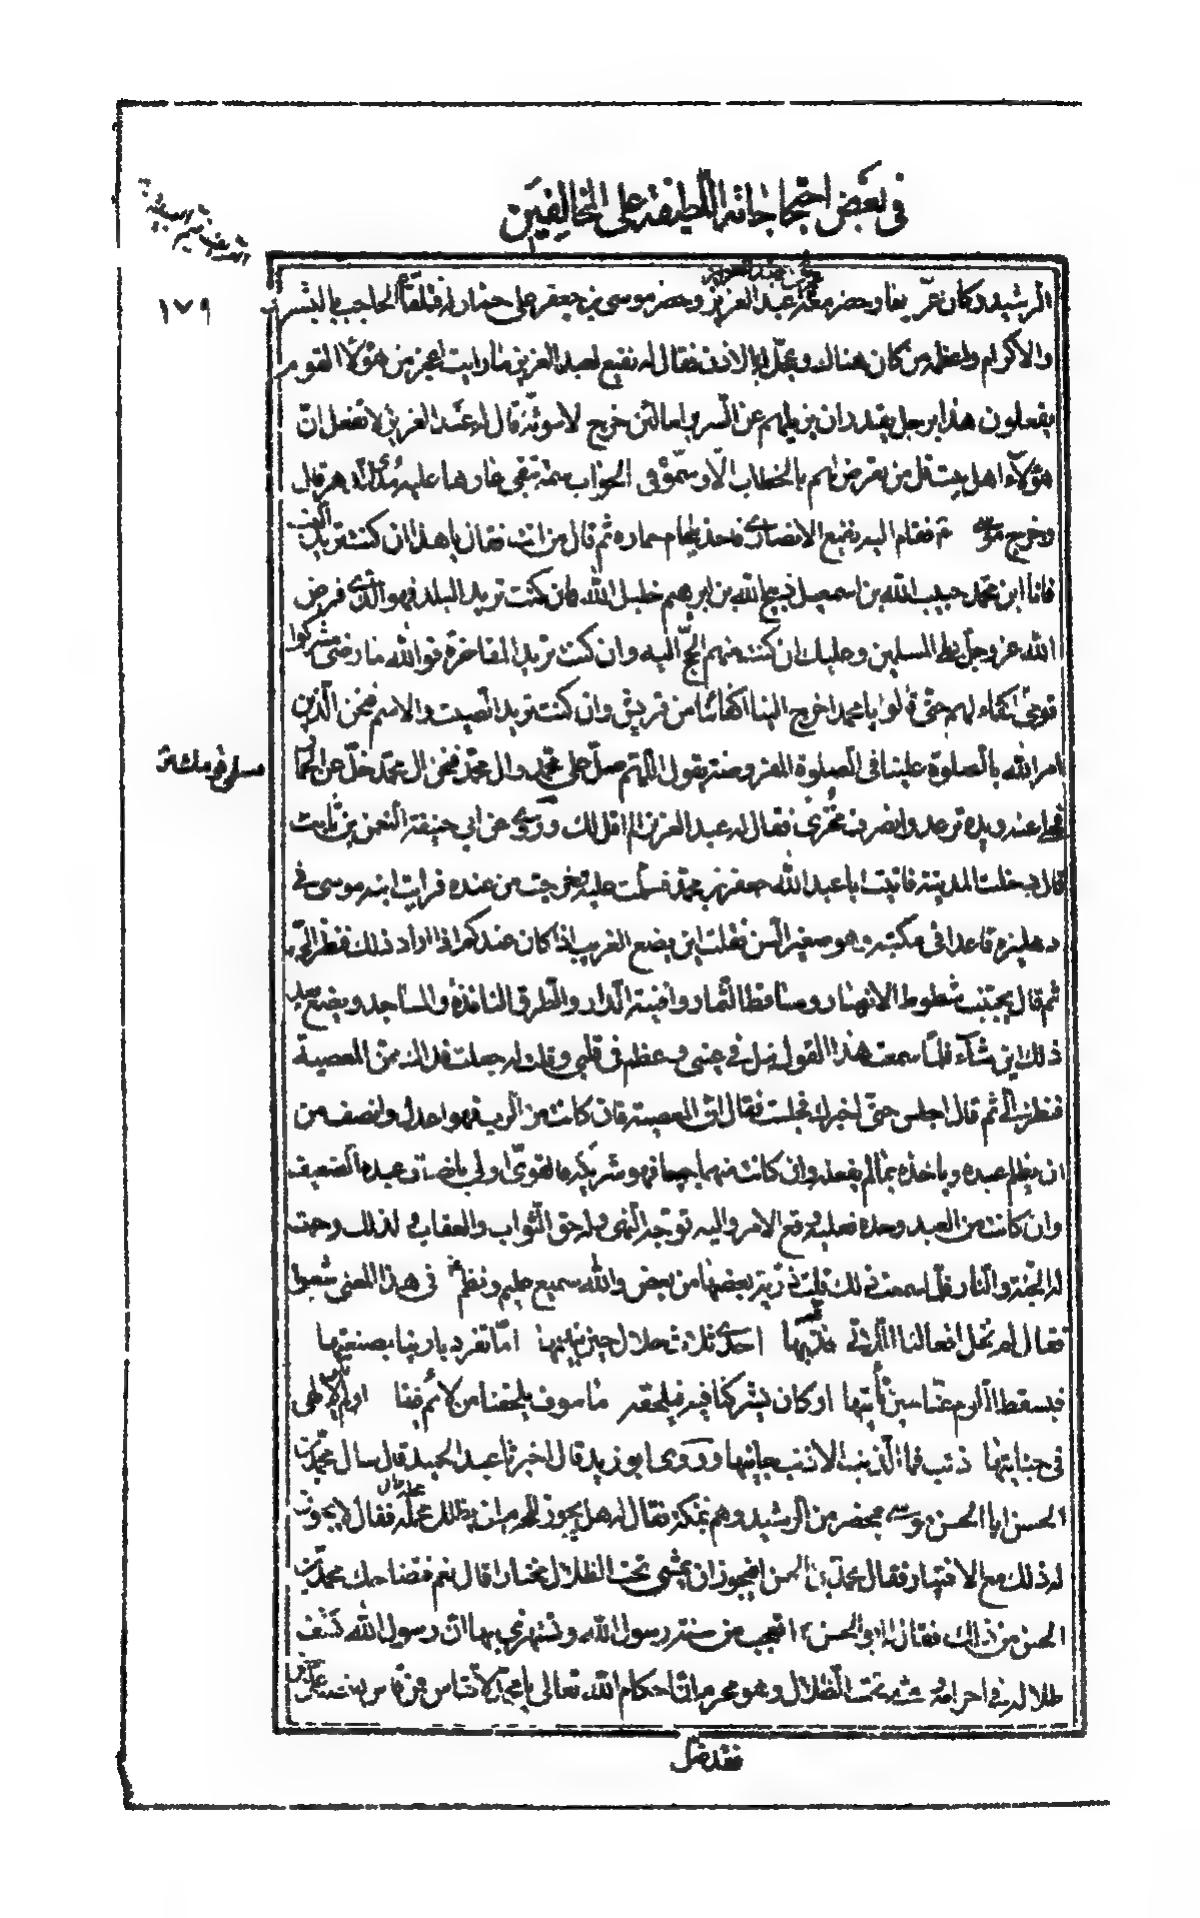 في بعض احتجاجاته اللطيفة على المخالفين
١٧٩
الرشيد وكان عريفا وحضر معه عبد العزيز وحضر موسى بن جعفر على حمار له فتلقاه الحاجب بالبشر
والاكرام واعظمه من كان هناك وعجل له الاذن فقال نفيع لعبد العزيز ما رايت اعجز من هؤلاء القوم
يفعلون هذا برجل يقدر ان يزيلهم عن السرير اما لئن خرج لاسوئنه قال له عبد العزيز لا تفعل ان
هؤلاء اهل بيت قل من تعرض لهم بالخطاب الا وسموه في الجواب سمة يبقى عارها عليه مدى الدهر قال
وخرج موسى ع فقام اليه نفيع الانصاري فاخذ بلجام حماره ثم قال من انت فقال يا هذا ان كنت تريد النسب
فانا ابن محمد حبيب الله بن اسمعيل ذبيح الله بن ابرهيم خليل الله وان كنت تريد البلد فهو الذي فرض
الله عز وجل على المسلمين وعليك ان كنت منهم الحج اليه وان كنت تريد المفاخرة فوالله ما رضى مشركوا
قومي اكفاء لهم حتى قالوا يا محمد اخرج الينا اكفائنا من قريش وان كنت تريد الصيت والاسم فنحن الذين
امر الله بالصلوة علينا في الصلوة بقول اللهم صل على محمد وال محمد فنحن ال محمد خل عن الحمار
فخلى عنه ويده ترعد وانصرف بخزي فقال له عبد العزيز الم اقل لك وروي عن ابي حنيفة النعمن بن ثابت
قال دخلت المدينة فاتيت ابا عبد الله جعفر بن محمد فسلمت عليه وخرجت من عنده فرايت ابنه موسى في
دهليزه قاعدا في مكتبه وهو صغير السن فقلت اين يضع الغريب اذا كان عندكم اذا اراد ذلك فنظر الي
ثم قال يجتنب شطوط الانهار ومساقط الثمار وافنية الدار والطرق النافذة والمساجد ويضع بعد
ذلك اين شاء فلما سمعت هذا القول نبل في عيني وعظم في قلبي وقلت له جعلت فداك ممن المعصية
فنظر الي ثم قال اجلس حتى اخبرك فجلست فقال ان المعصية فان كانت من الرب فهو اعدل وانصف من
ان يظلم عبده وياخذه بما لم يفعله وان كانت منهما جميعا فهو شريكه والقوي اولى بانصاف عبده الضعيف
وان كانت من العبد وحده فعليه وقع الامر واليه توجه النهي وله حق الثواب والعقاب ولذلك وجبت
له الجنة والنار فلما سمعت ذلك قلت ذرية بعضها من بعض والله سميع عليم ونظم في هذا المعنى شعرا
فقال لم تخل افعالنا اللاتي نذم بها احدى ثلاث خلال حين نانيها اما تفرد بارينا بصنعتها
فيسقط اللوم عنا حين ناتيها او كان يشركنا فيه فيلحقه ما سوف يلحقنا من لائم فينا او لم يكن لالهي
في جنايتها ذنب فما الذنب الا ذنب جانيها وروى ابو زيد قال اخبرنا عبد الحميد قال سال محمد بن
الحسن ابا الحسن موسى بمحضر من الرشيد وهم بمكة فقال له هل يجوز للمحرم ان يظلل عليه محمله فقال لا يجوز
له ذلك مع الاختيار فقال محمد بن الحسن افيجوز ان يمشي تحت الظلال مختارا قال نعم فتضاحك محمد بن
الحسن من ذلك فقال له ابو الحسن ع اتعجب من سنة رسول الله وتستهزئ بها ان رسول الله كشف
ظلاله في احرامه ومشى تحت الظلال وهو محرم ان احكام الله تعالى يا محمد لا تقاس فمن قاس بعضها على بعض
فقد ضل